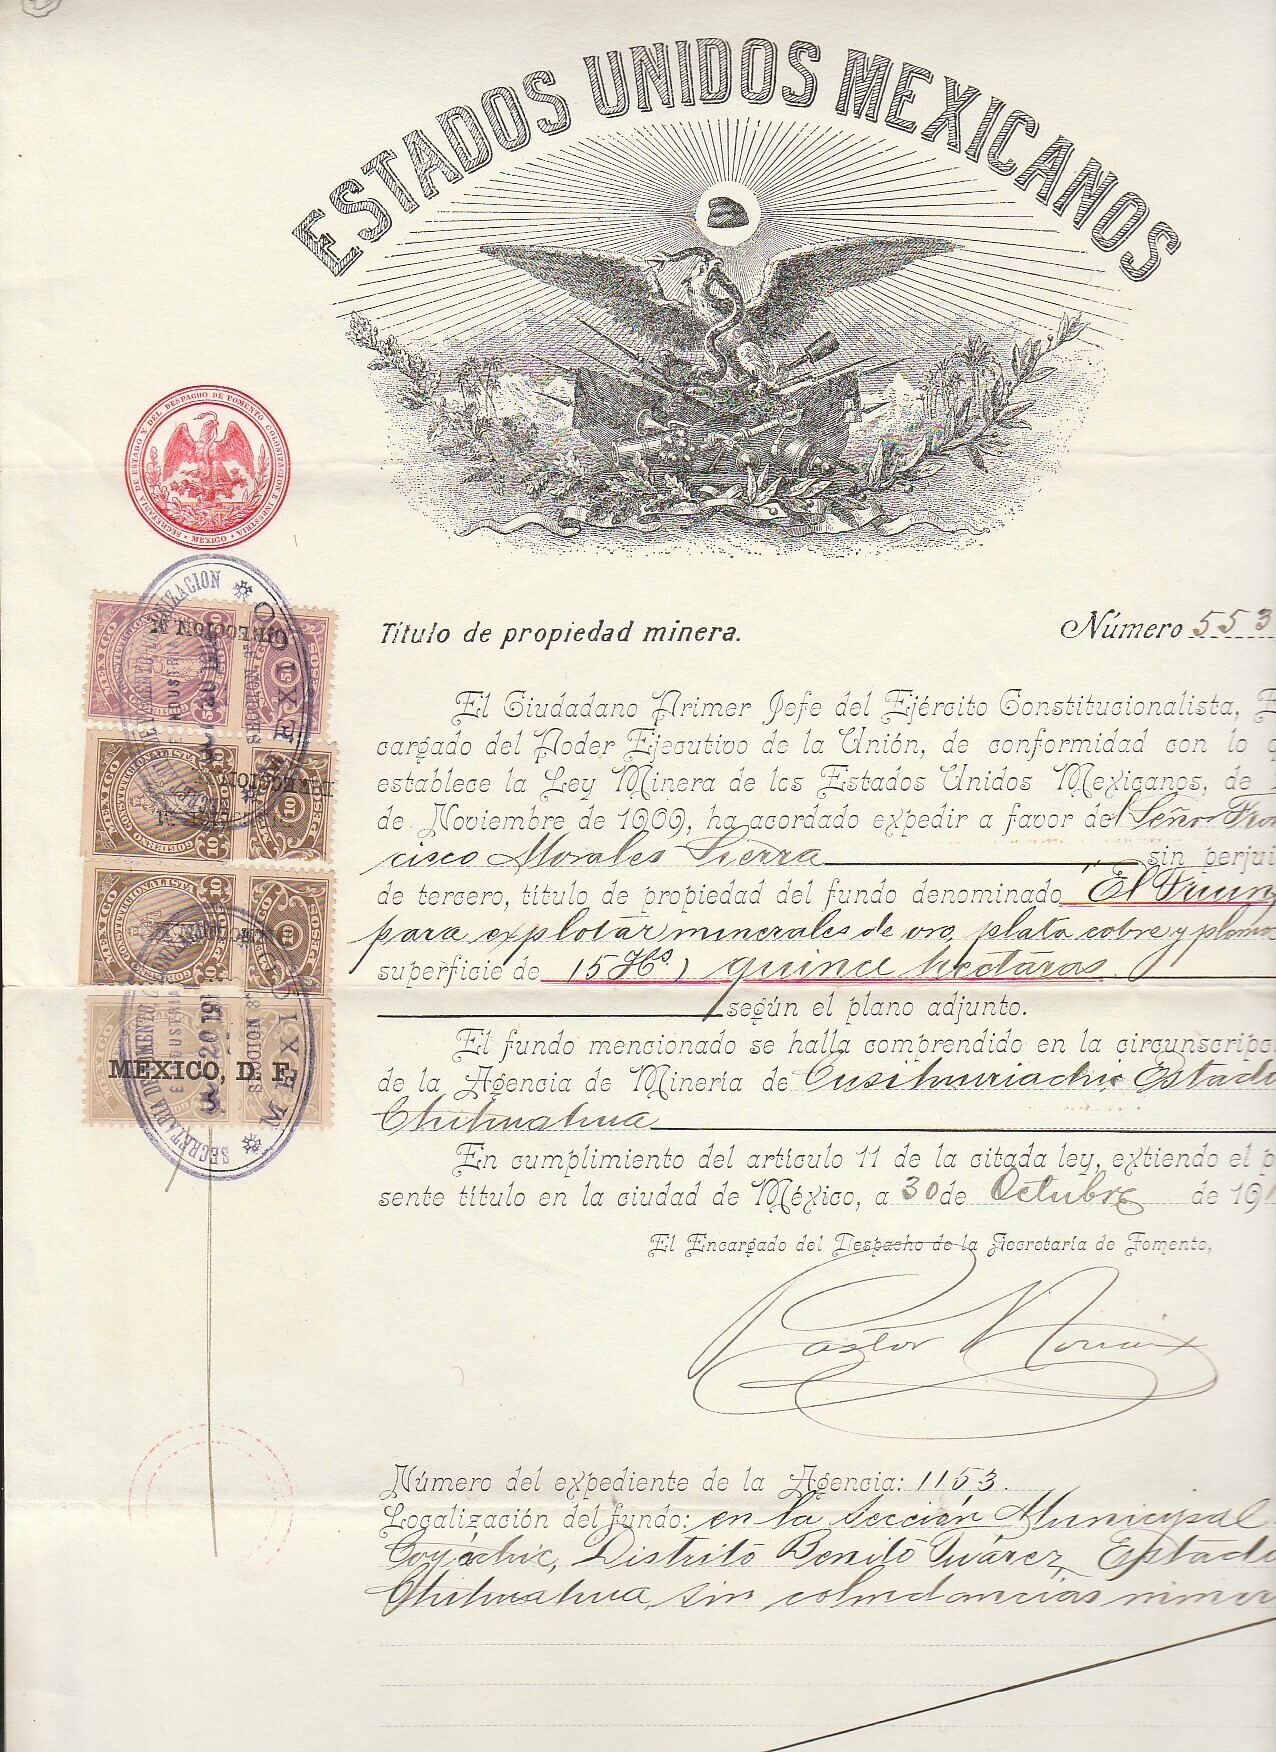 ESTADOS UNIDOS MEXICANOS
SECRETARIA DE ESTADO Y DEL DESPACHO DE FOMENTO COLONIZACION E INDUSTRIA
MEXICO
Título de propiedad minera. Número 553
El Ciudadano Primer Jefe del Ejército Constitucionalista, E
cargado del Poder Ejecutivo de la Unión, de conformidad con lo q
establece la Ley Minera de los Estados Unidos Mexicanos, de
de Noviembre de 1909, ha acordado expedir a favor del Señor Fran
cisco Morales Sierra sin perjui
de tercero, título de propiedad del fundo denominado "El Triun
para explotar minerales de oro, plata cobre y plomo
superficie de 15 Hs) quince hectáras.
según el plano adjunto.
El fundo mencionado se halla comprendido en la circunscripc
de la Agencia de Minería de Cusihuiriachic, Estado
Chihuahua
En cumplimiento del artículo 11 de la citada ley, extiendo el p
sente título en la ciudad de México, a 30 de Octubre de 191
El Encargado del Despacho de la Secretaría de Fomento,
Pastor Rouaix
Número del expediente de la Agencia: 1153.
Localización del fundo: en la Sección Municipal
Coyáchic, Distrito Benito Juárez, Estado
Chihuahua, sin colindancias miner
MEXICO
GOBIERNO CONSTITUCIONALISTA
50 PESOS
MEXICO
GOBIERNO CONSTITUCIONALISTA
10 PESOS
MEXICO
GOBIERNO CONSTITUCIONALISTA
10 PESOS
MEXICO, D. F.
SECRETARIA DE FOMENTO COLONIZACION
E INDUSTRIA
SECCION 8ª
MEXICO